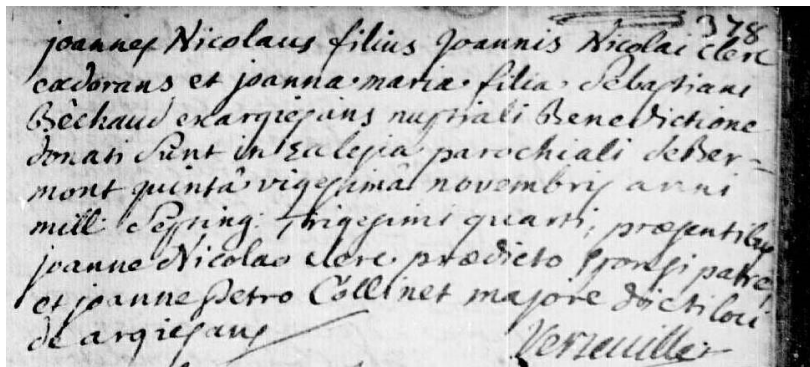 378
joannes Nicolaus filius Joannis Nicolai clerc
exdorans et joanna maria filia Sebastiani
Bêchaud exargiesans nuptiali Benedictione
donati sunt in Ecclesia parochiali de Ber=
mont quintâ vigesimâ novembris anni
mill. Septing. trigesimi quarti, præsentibus
joanne Nicolao clerc prædicto sponsi patre,
et joanne Petro Collinet majore dicti loci
de argiesans